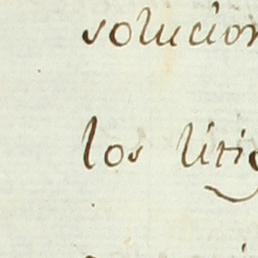 solucion
los litig